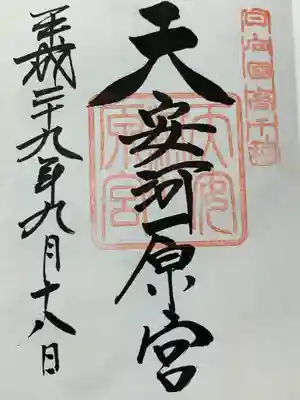 日向國高千穂
天安河原宮
天安河原宮
平成二十九年九月十八日